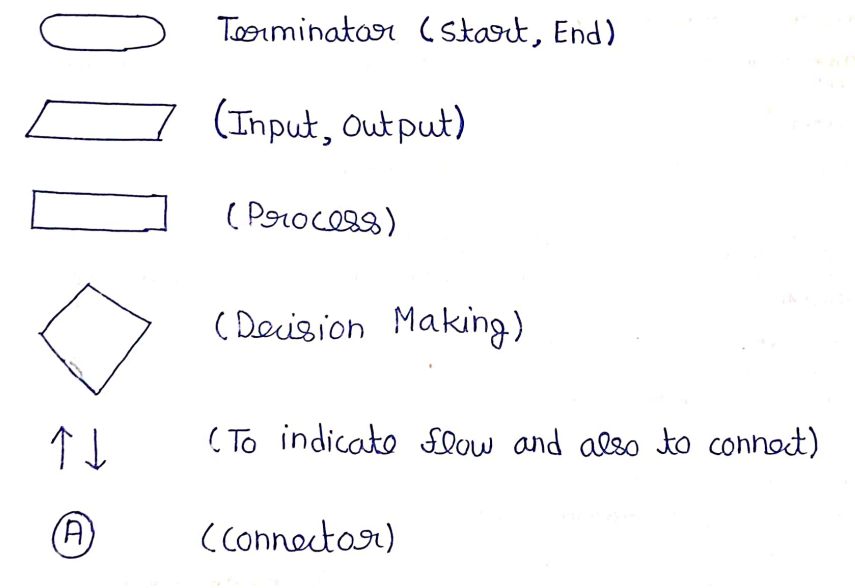 Terminator (Start, End)
(Input, Output)
(Process)
(Decision Making)
↑ ↓ (To indicate flow and also to connect)
A (Connector)